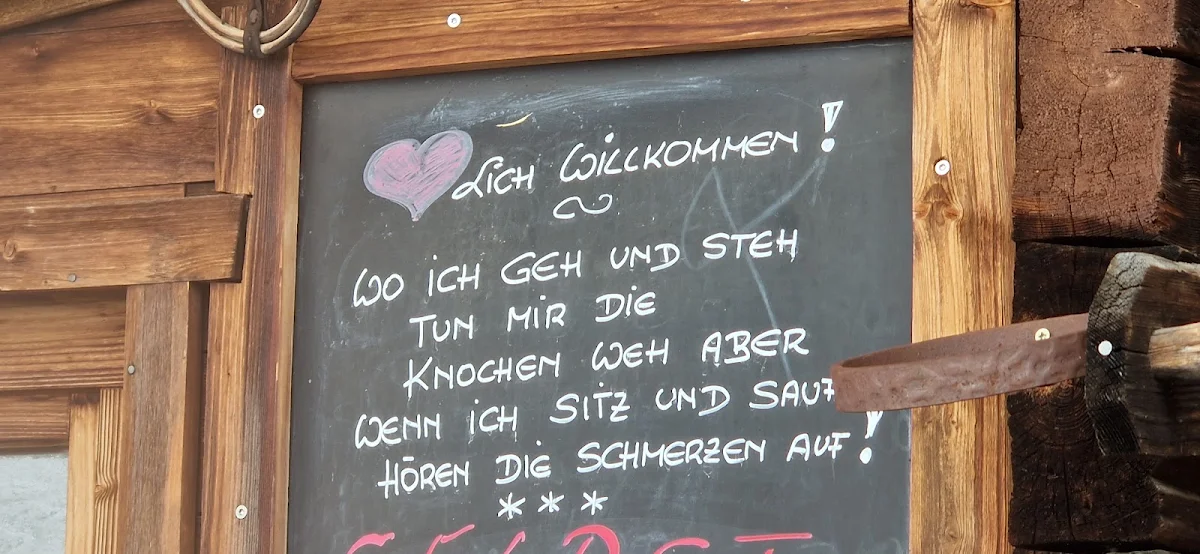 Lich Willkommen!
WO ICH GEH UND STEH
TUN MIR DIE
KNOCHEN WEH ABER
WENN ICH SITZ UND SAUF
HÖREN DIE SCHMERZEN AUF!
***